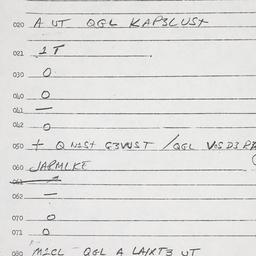 020 A UT QGL KAP3LUST
021 1 T
030 0
040 0
041 —
042 0
050 + Q N1ST G3VUST / QGL V S D3
060 JARMLKE
061
062 —
070 0
071 0
080 M1CL QGL A LAIXT3 UT